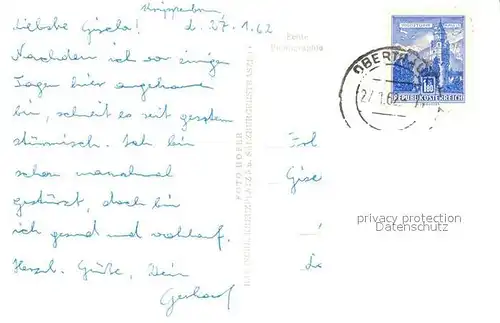 Krippenbrunn
d. 27.1.62
Liebste Gisela!
Nachdem ich vor einigen
Tagen hier angekommen
bin, schneit es seit gestern
stürmisch. Ich bin
schon manchmal
gestürzt, doch bin
ich gesund und wohlauf.
Herzl. Grüße, Dein
Gerhard
Echte
Photographie
FOTO HOFER
Frl
Gise
OBERTRAU
27.1.62
1.80
REPUBLIK ÖSTERREICH
privacy protection
Datenschutz